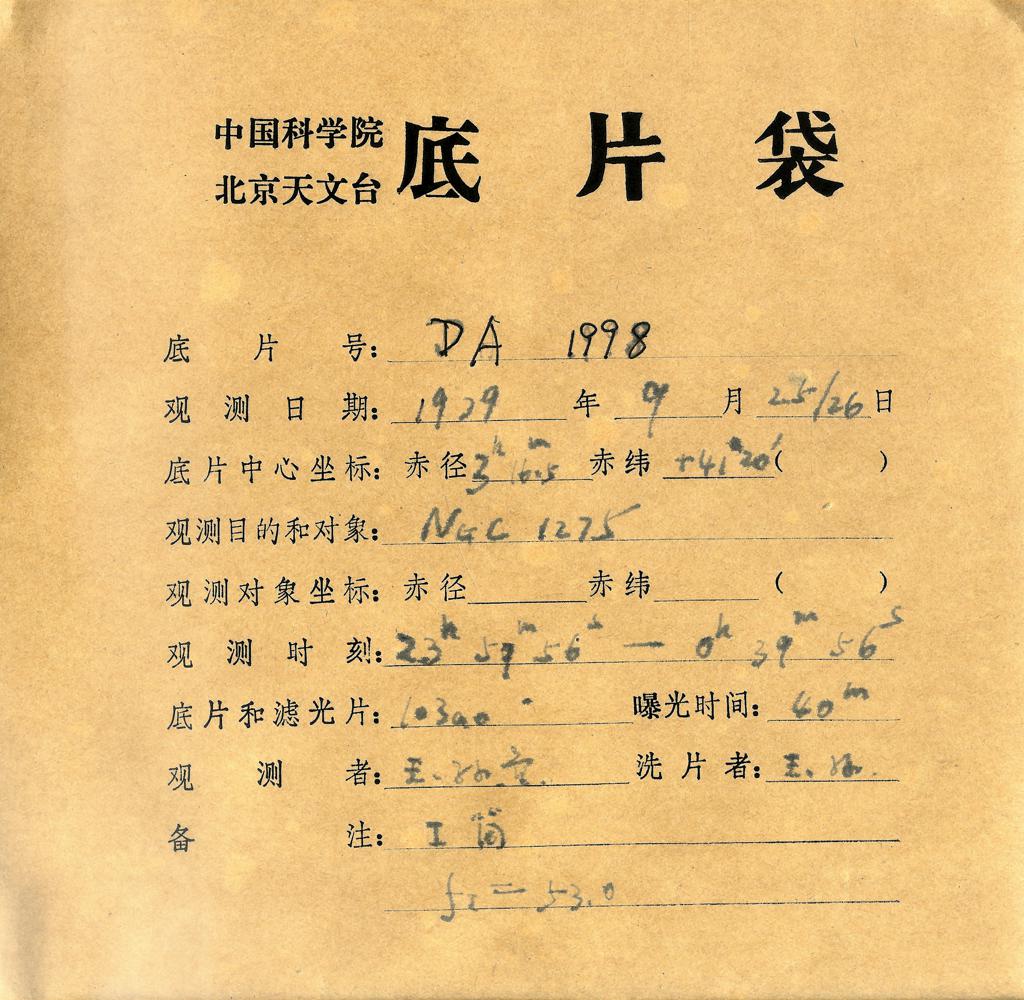 中国科学院
北京天文台
底片袋
底片号：DA 1998
观测日期：1979 年 9 月 25/26 日
底片中心坐标：赤径 3ʰ 16ᵐ.5 赤纬 +41°20′( )
观测目的和对象：NGC 1275
观测对象坐标：赤径 赤纬 ( )
观测时刻：23ʰ 59ᵐ 56ˢ — 0ʰ 39ᵐ 56ˢ
底片和滤光片：103aO 曝光时间：40ᵐ
观测者：王.孙. 洗片者：王.孙.
备注：I 筒
f₂ = 53.0